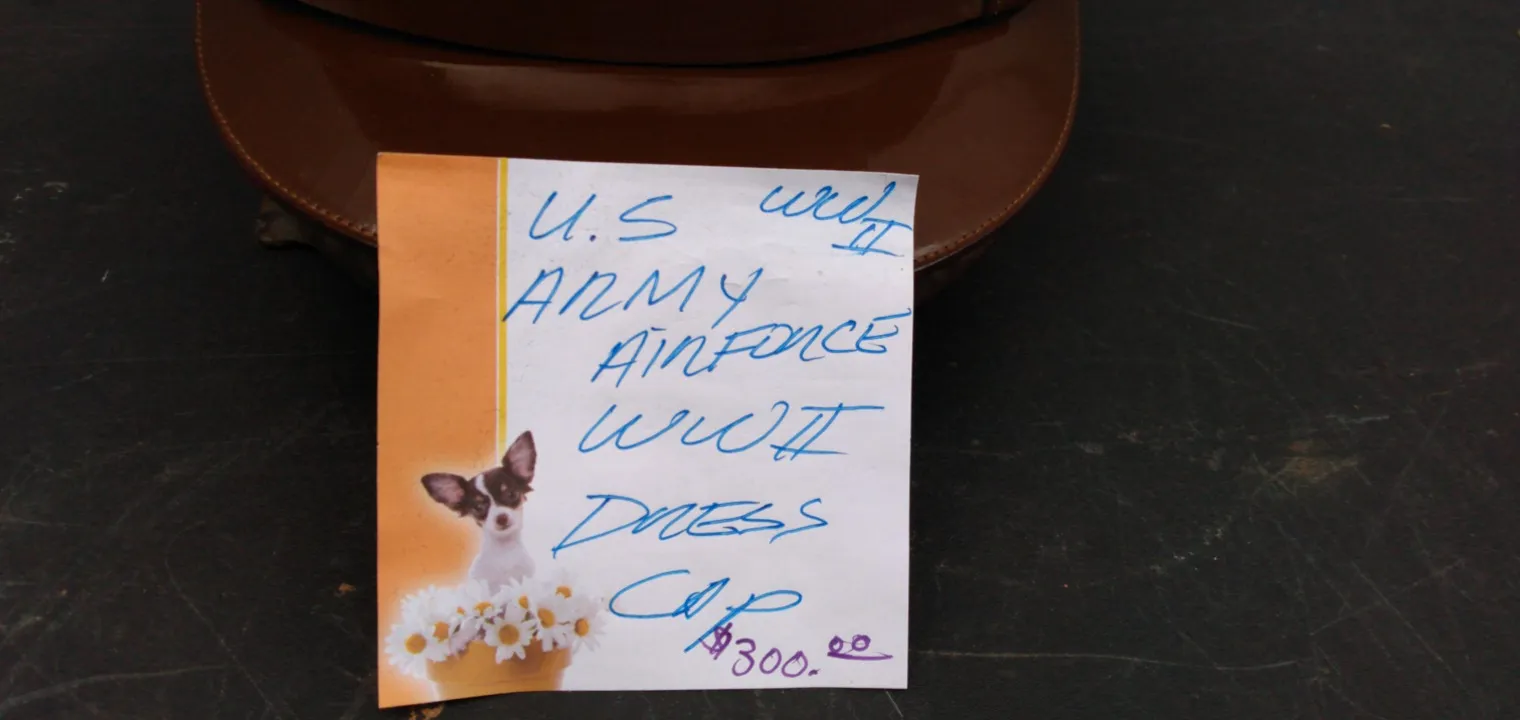 U.S WWII
ARMY
AIRFORCE
WWII
DRESS
CAP
$300.00